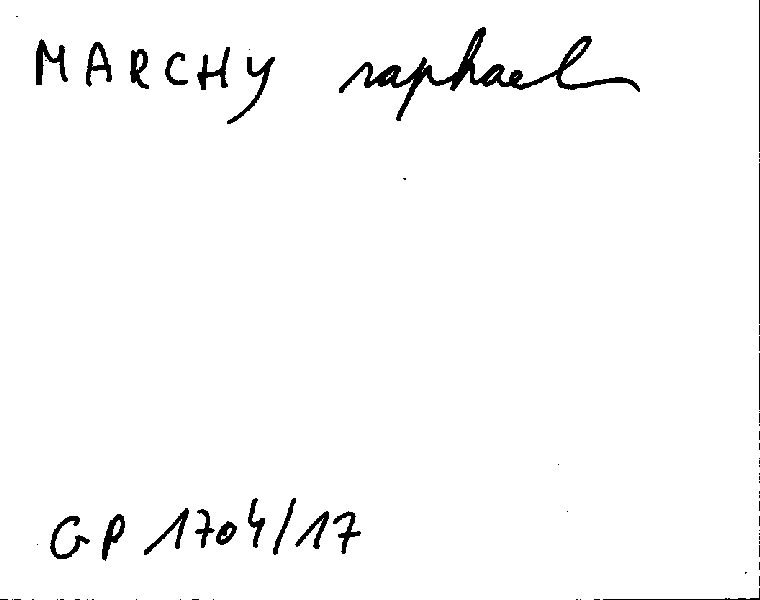 MARCHY raphael
GP 1704/17